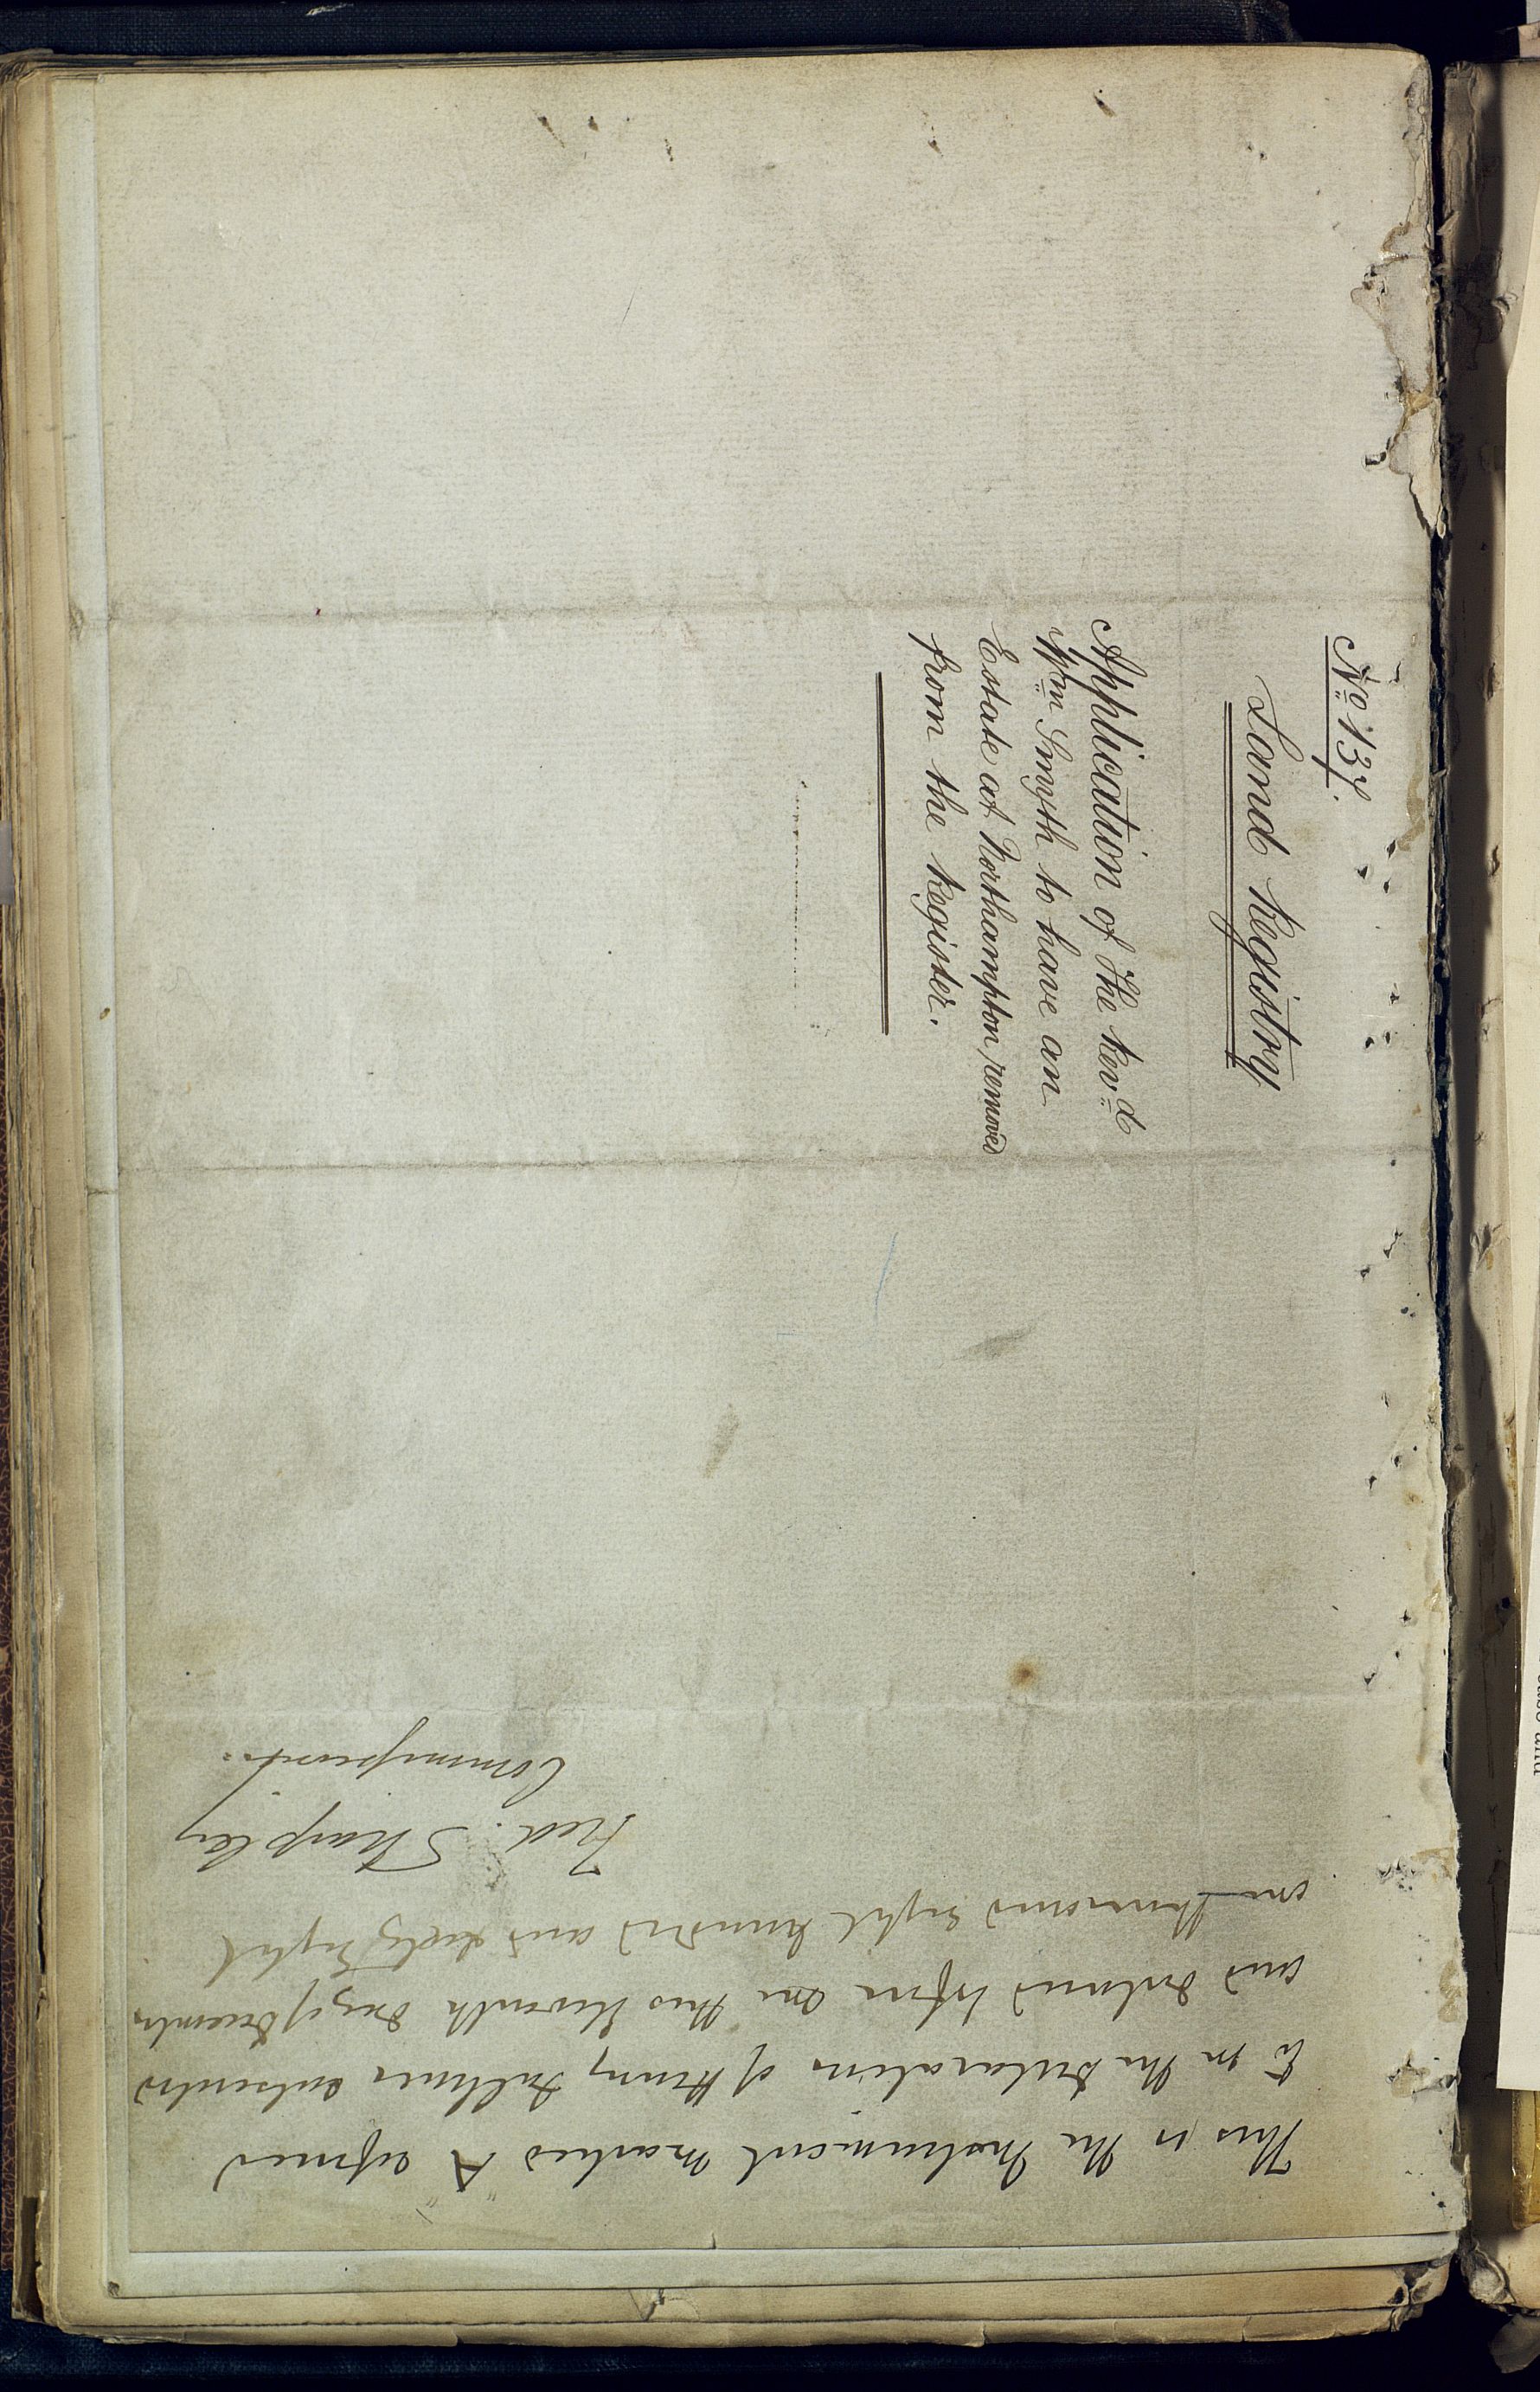 No 137.
Land Registry
Application of The Revd
Wm Smyth to have an
Estate at Northampton removed
from the Register.
This is the Instrument marked "A" referred
to in the declaration of Henry subscribed
and declared before me this Eleventh day of December
one thousand eight hundred and sixty Eight
Fred. Sharpley
Commissioner.